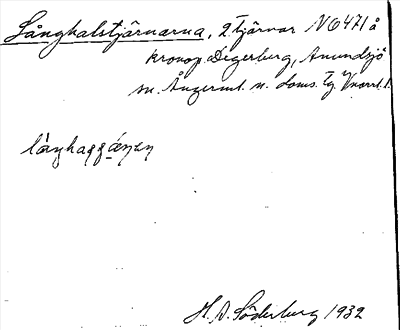 Långhalstjärnarna, 2 tjärnar NO 471 å
kronop. Degerberg, Anundsjö
sn. Ångerml. n. doms. Tg.
H. D. Söderberg 1932